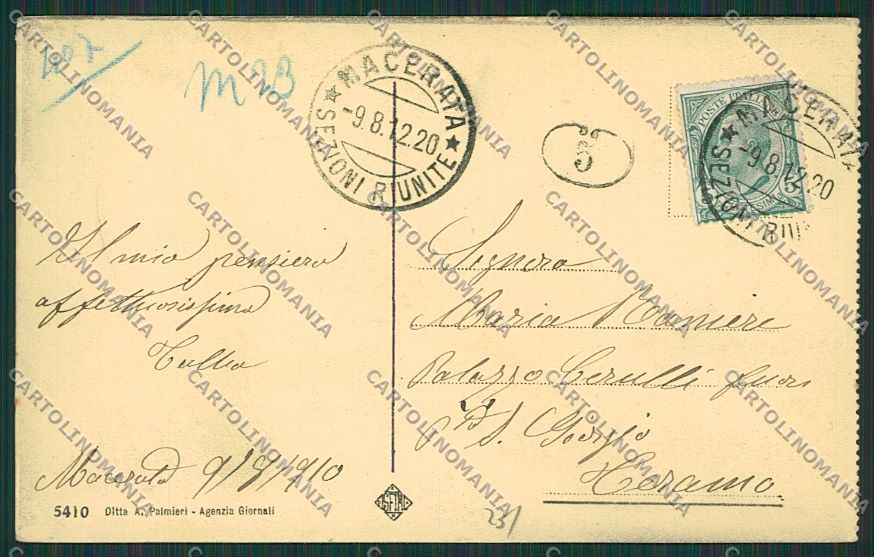 m 23
MACERATA
-9.8.12.20
SEZIONI RIUNITE
5
POSTE ITALIANE
MACERATA
-9.8.12.20
SEZIONI RIUNI
Il mio pensiero
affettuosissimo
Tullia
Macerata 9/8/910
Signora
Maria Ranieri
Palazzo Cerulli fuori
Pta S. Giorgio
Teramo
5410 Ditta A. Palmieri - Agenzia Giornali
23/
CARTOLINOMANIA